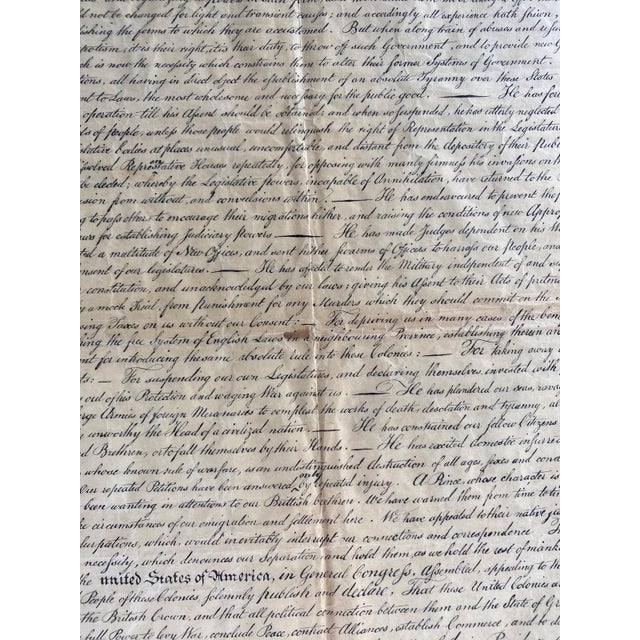 ld not be changed for light and transient causes; and accordingly all experience hath shewn,
lishing the forms to which they are accustomed. But when a long train of abuses and usur
potism, it is their right, it is their duty, to throw off such Government, and to provide new G
ch is now the necessity which constrains them to alter their former Systems of Government.
tions, all having in direct object the establishment of an absolute Tyranny over these States
nt to Laws, the most wholesome and necessary for the public good. — He has for
operation till his Assent should be obtained; and when so suspended, he has utterly neglected
ts of people, unless those people would relinquish the right of Representation in the Legislatur
slative bodies at places unusual, uncomfortable, and distant from the depository of their Publ
ssolved Representative Houses repeatedly, for opposing with manly firmness his invasions on th
be elected; whereby the Legislative powers, incapable of Annihilation, have returned to the
asion from without, and convulsions within. — He has endeavoured to prevent the p
g to pass others to encourage their migrations hither, and raising the conditions of new Approp
aws for establishing Judiciary powers — He has made Judges dependent on his W
ted a multitude of New Offices, and sent hither swarms of Officers to harrass our People, and
onsent of our legislatures. — He has affected to render the Military independent of and su
constitution, and unacknowledged by our laws; giving his Assent to their Acts of preten
y a mock Trial, from punishment for any Murders which they should commit on the
sing Taxes on us without our Consent: — For depriving us in many cases of the ben
ing the free System of English Laws in a neighbouring Province, establishing therein an
nt for introducing the same absolute rule into these Colonies: — For taking away
ts: — For suspending our own Legislatures, and declaring themselves invested with
out of his Protection and waging War against us. — He has plundered our seas, ravag
rge Armies of foreign Mercenaries to compleat the works of death, desolation and tyranny, al
y unworthy the Head of a civilized nation. — He has constrained our fellow Citizens
nd Brethren, or to fall themselves by their Hands. — He has excited domestic insurrec
whose known rule of warfare, is an undistinguished destruction of all ages, sexes and cond
Our repeated Petitions have been answered only by repeated injury. A Prince, whose character is
been wanting in attentions to our Brittish brethren. We have warned them from time to ti
e circumstances of our emigration and settlement here. We have appealed to their native ju
surpations, which would inevitably interrupt our connections and correspondence. Th
necessity, which denounces our Separation, and hold them, as we hold the rest of mank
the united States of America, in General Congress, Assembled, appealing to the
People of these Colonies solemnly publish and declare, That these United Colonies a
the British Crown, and that all political connection between them and the State of Gr
full Power to levy War, conclude Peace, contract Alliances, establish Commerce, and to do